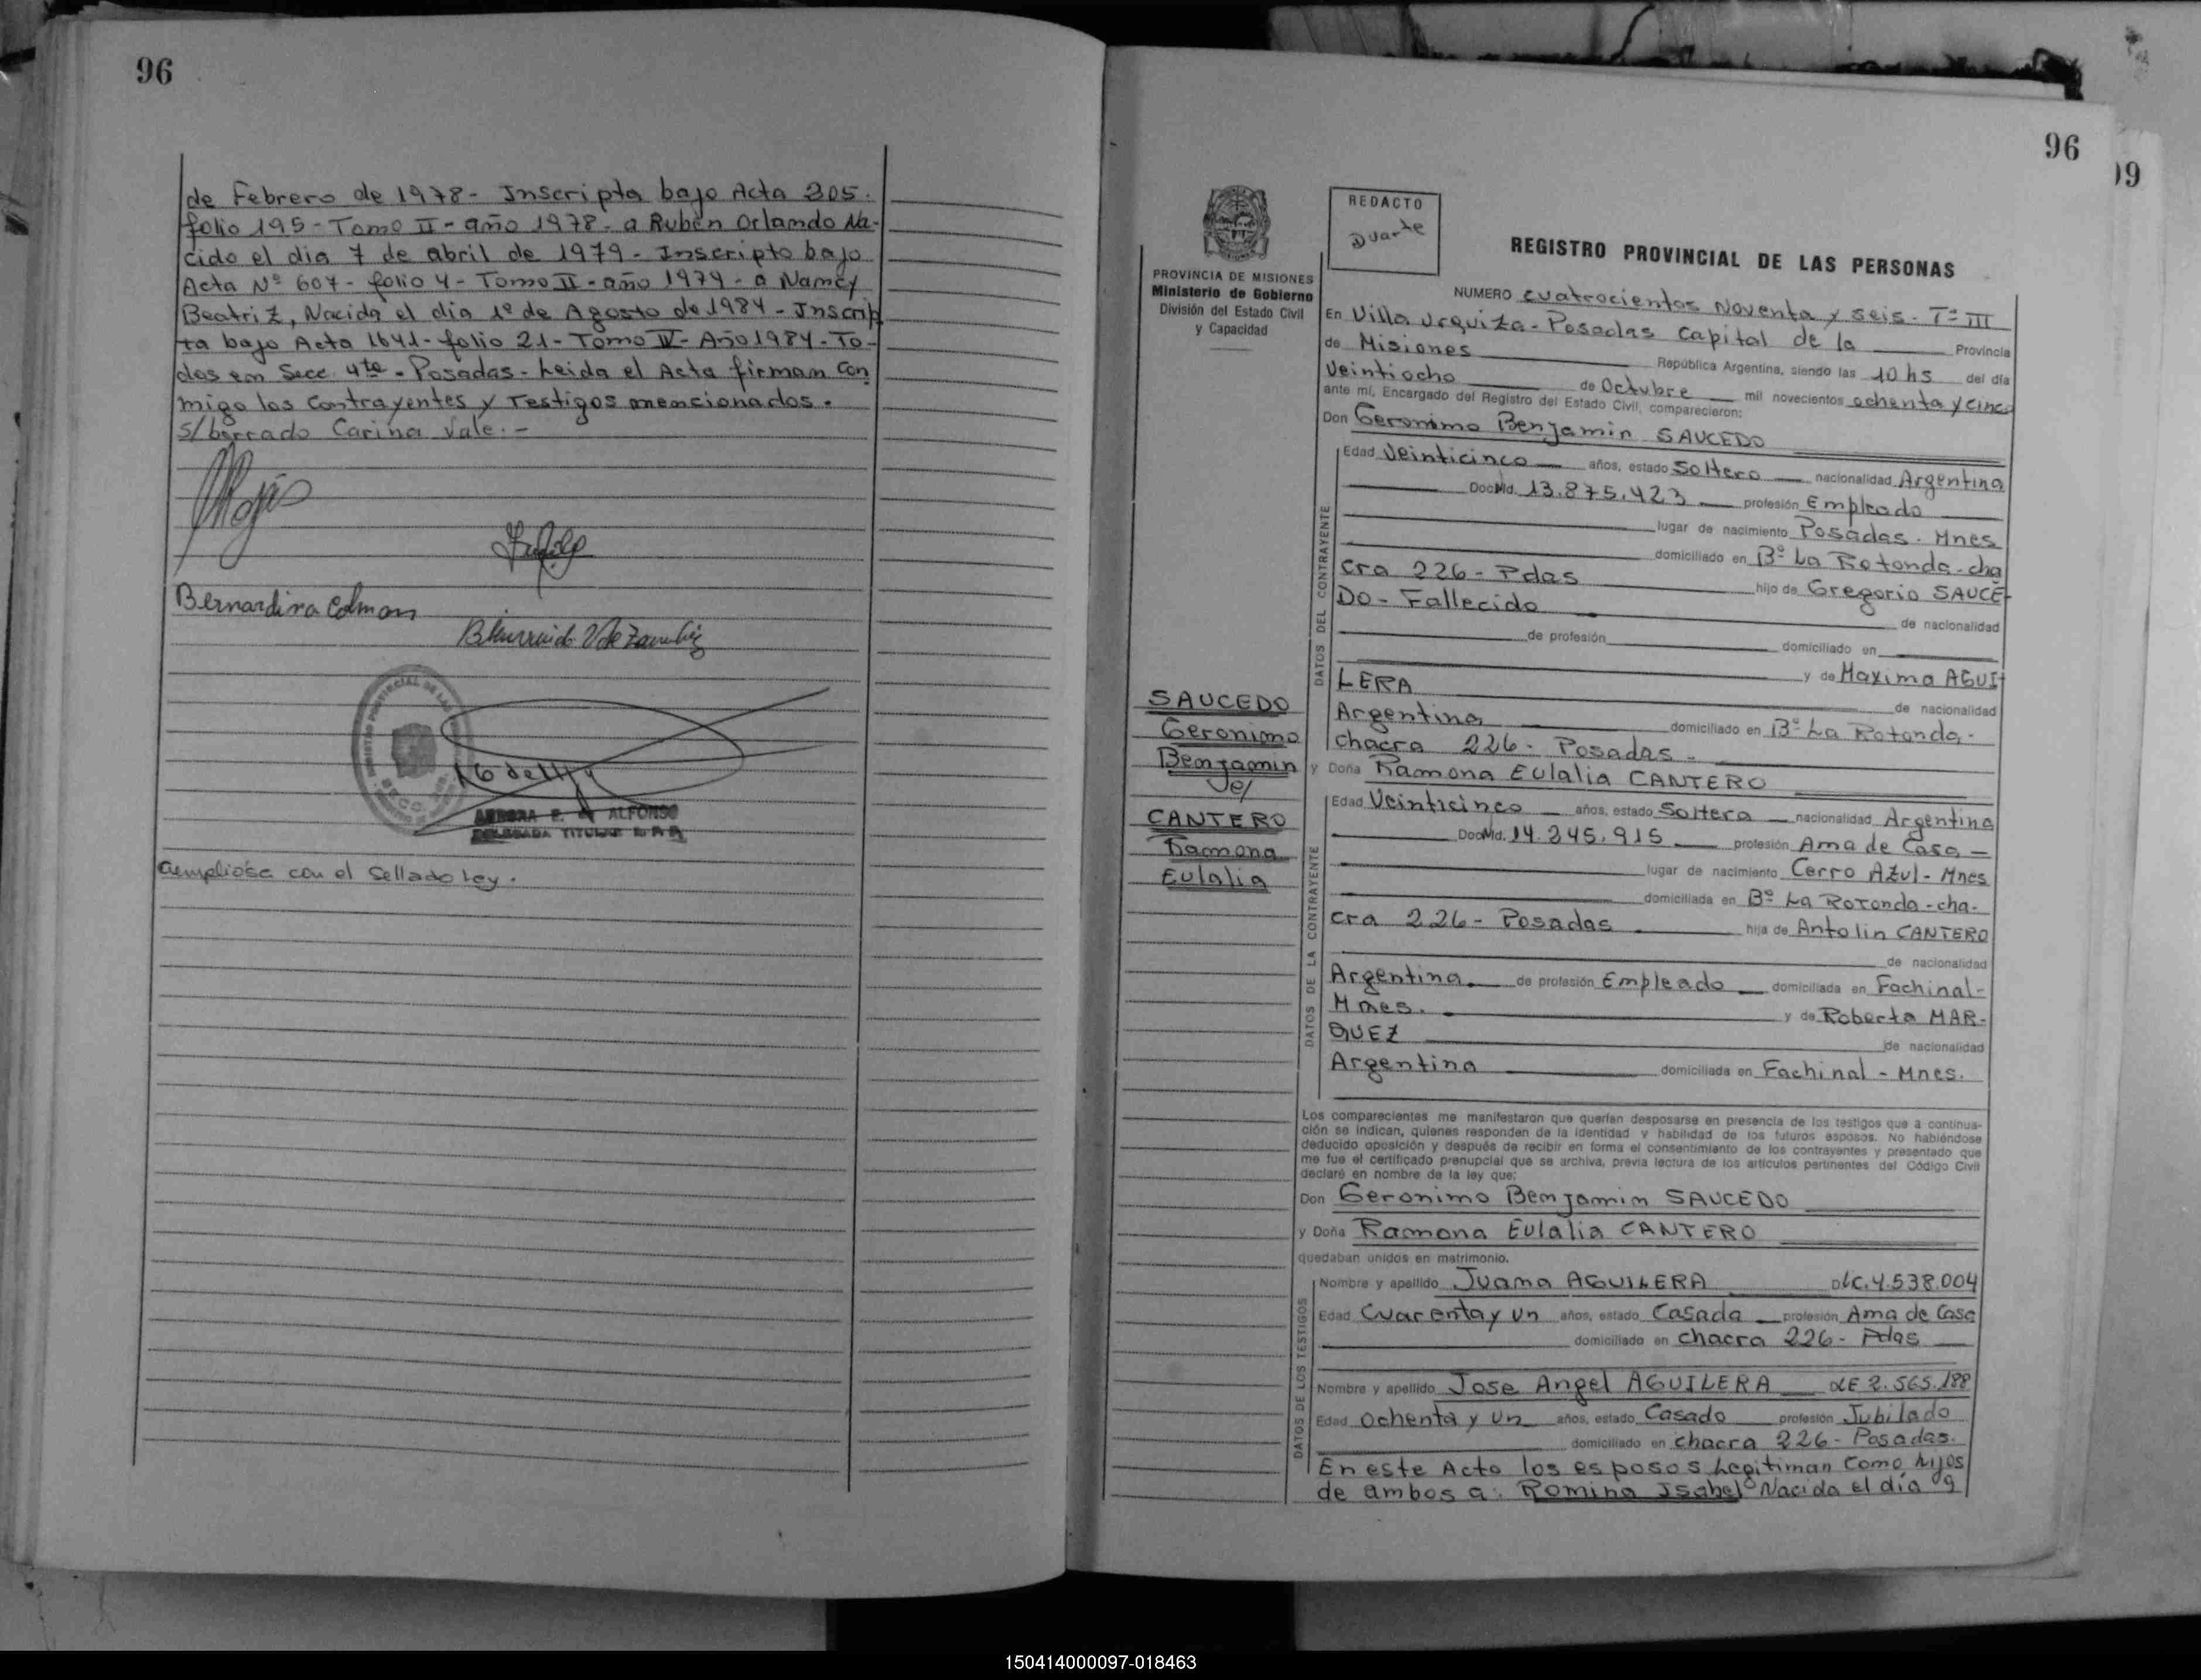 96
de Febrero de 1978- Inscripta bajo Acta 305.
folio 195- Tomo II- año 1978- a Rubén Orlando Na-
cido el dia 7 de abril de 1979- Inscripto bajo
Acta Nº 607- folio 4- Tomo II- año 1979- a Nancy
Beatriz, Nacida el dia 1º de Agosto de 1984- Inscrip
ta bajo Acta 1641- folio 21- Tomo IV- Año 1984- To-
dos en Secc. 4ta- Posadas- Leida el Acta firman con
migo los Contrayentes y Testigos mencionados.
s/borrado Carina Vale.-
Bernardina Colman
ALFONSO
DELEGADA TITULAR
Cumpliose con el Sellado Ley.
96
99
REDACTO
Duarte
PROVINCIA DE MISIONES
Ministerio de Gobierno
División del Estado Civil
y Capacidad
REGISTRO PROVINCIAL DE LAS PERSONAS
NUMERO cuatrocientos Noventa y seis- Tº III
En Villa Urquiza- Posadas Capital de la Provincia
de Misiones República Argentina, siendo las 10 hs del día
Veintiocho de Octubre mil novecientos ochenta y cinco
ante mí, Encargado del Registro del Estado Civil, comparecieron:
Don Geronimo Benjamin SAUCEDO
DATOS DEL CONTRAYENTE
Edad Veinticinco años, estado Soltero nacionalidad Argentina
Doc.Nd. 13.875.423 profesión Empleado
lugar de nacimiento Posadas. Mnes
domiciliado en Bº La Rotonda-cha
cra 226- Pdas hijo de Gregorio SAUCE-
DO- Fallecido de nacionalidad
de profesión domiciliado en
y de Maxima AGUI-
LERA de nacionalidad
Argentina domiciliado en Bº La Rotonda-
chacra 226- Posadas-
SAUCEDO
Geronimo
Benjamin
c/
CANTERO
Ramona
Eulalia
y Doña Ramona Eulalia CANTERO
DATOS DE LA CONTRAYENTE
Edad Veinticinco años, estado Soltera nacionalidad Argentina
Doc.Nd. 14.245.915 profesión Ama de Casa
lugar de nacimiento Cerro Azul- Mnes
domiciliada en Bº La Rotonda-cha-
cra 226- Posadas hija de Antolin CANTERO
de nacionalidad
Argentina de profesión Empleado domiciliada en Fachinal-
Mnes. y de Roberta MAR-
QUEZ de nacionalidad
Argentina domiciliada en Fachinal- Mnes.
Los comparecientes me manifestaron que querían desposarse en presencia de los testigos que a continua-
ción se indican, quienes responden de la identidad y habilidad de los futuros esposos. No habiéndose
deducido oposición y después de recibir en forma el consentimiento de los contrayentes y presentado que
me fue el certificado prenupcial que se archiva, previa lectura de los artículos pertinentes del Código Civil
declaré en nombre de la ley que:
Don Geronimo Benjamin SAUCEDO
y Doña Ramona Eulalia CANTERO
quedaban unidos en matrimonio.
DATOS DE LOS TESTIGOS
Nombre y apellido Juana AGUILERA LC.4.538.004
Edad Cuarenta y un años, estado Casada profesión Ama de Casa
domiciliado en chacra 226- Pdas
Nombre y apellido Jose Angel AGUILERA LE 2.565.188
Edad Ochenta y un años, estado Casado profesión Jubilado
domiciliado en chacra 226- Posadas.
En este Acto los esposos Legitiman como hijos
de ambos a: Romina Isabel Nacida el día 9
150414000097-018463